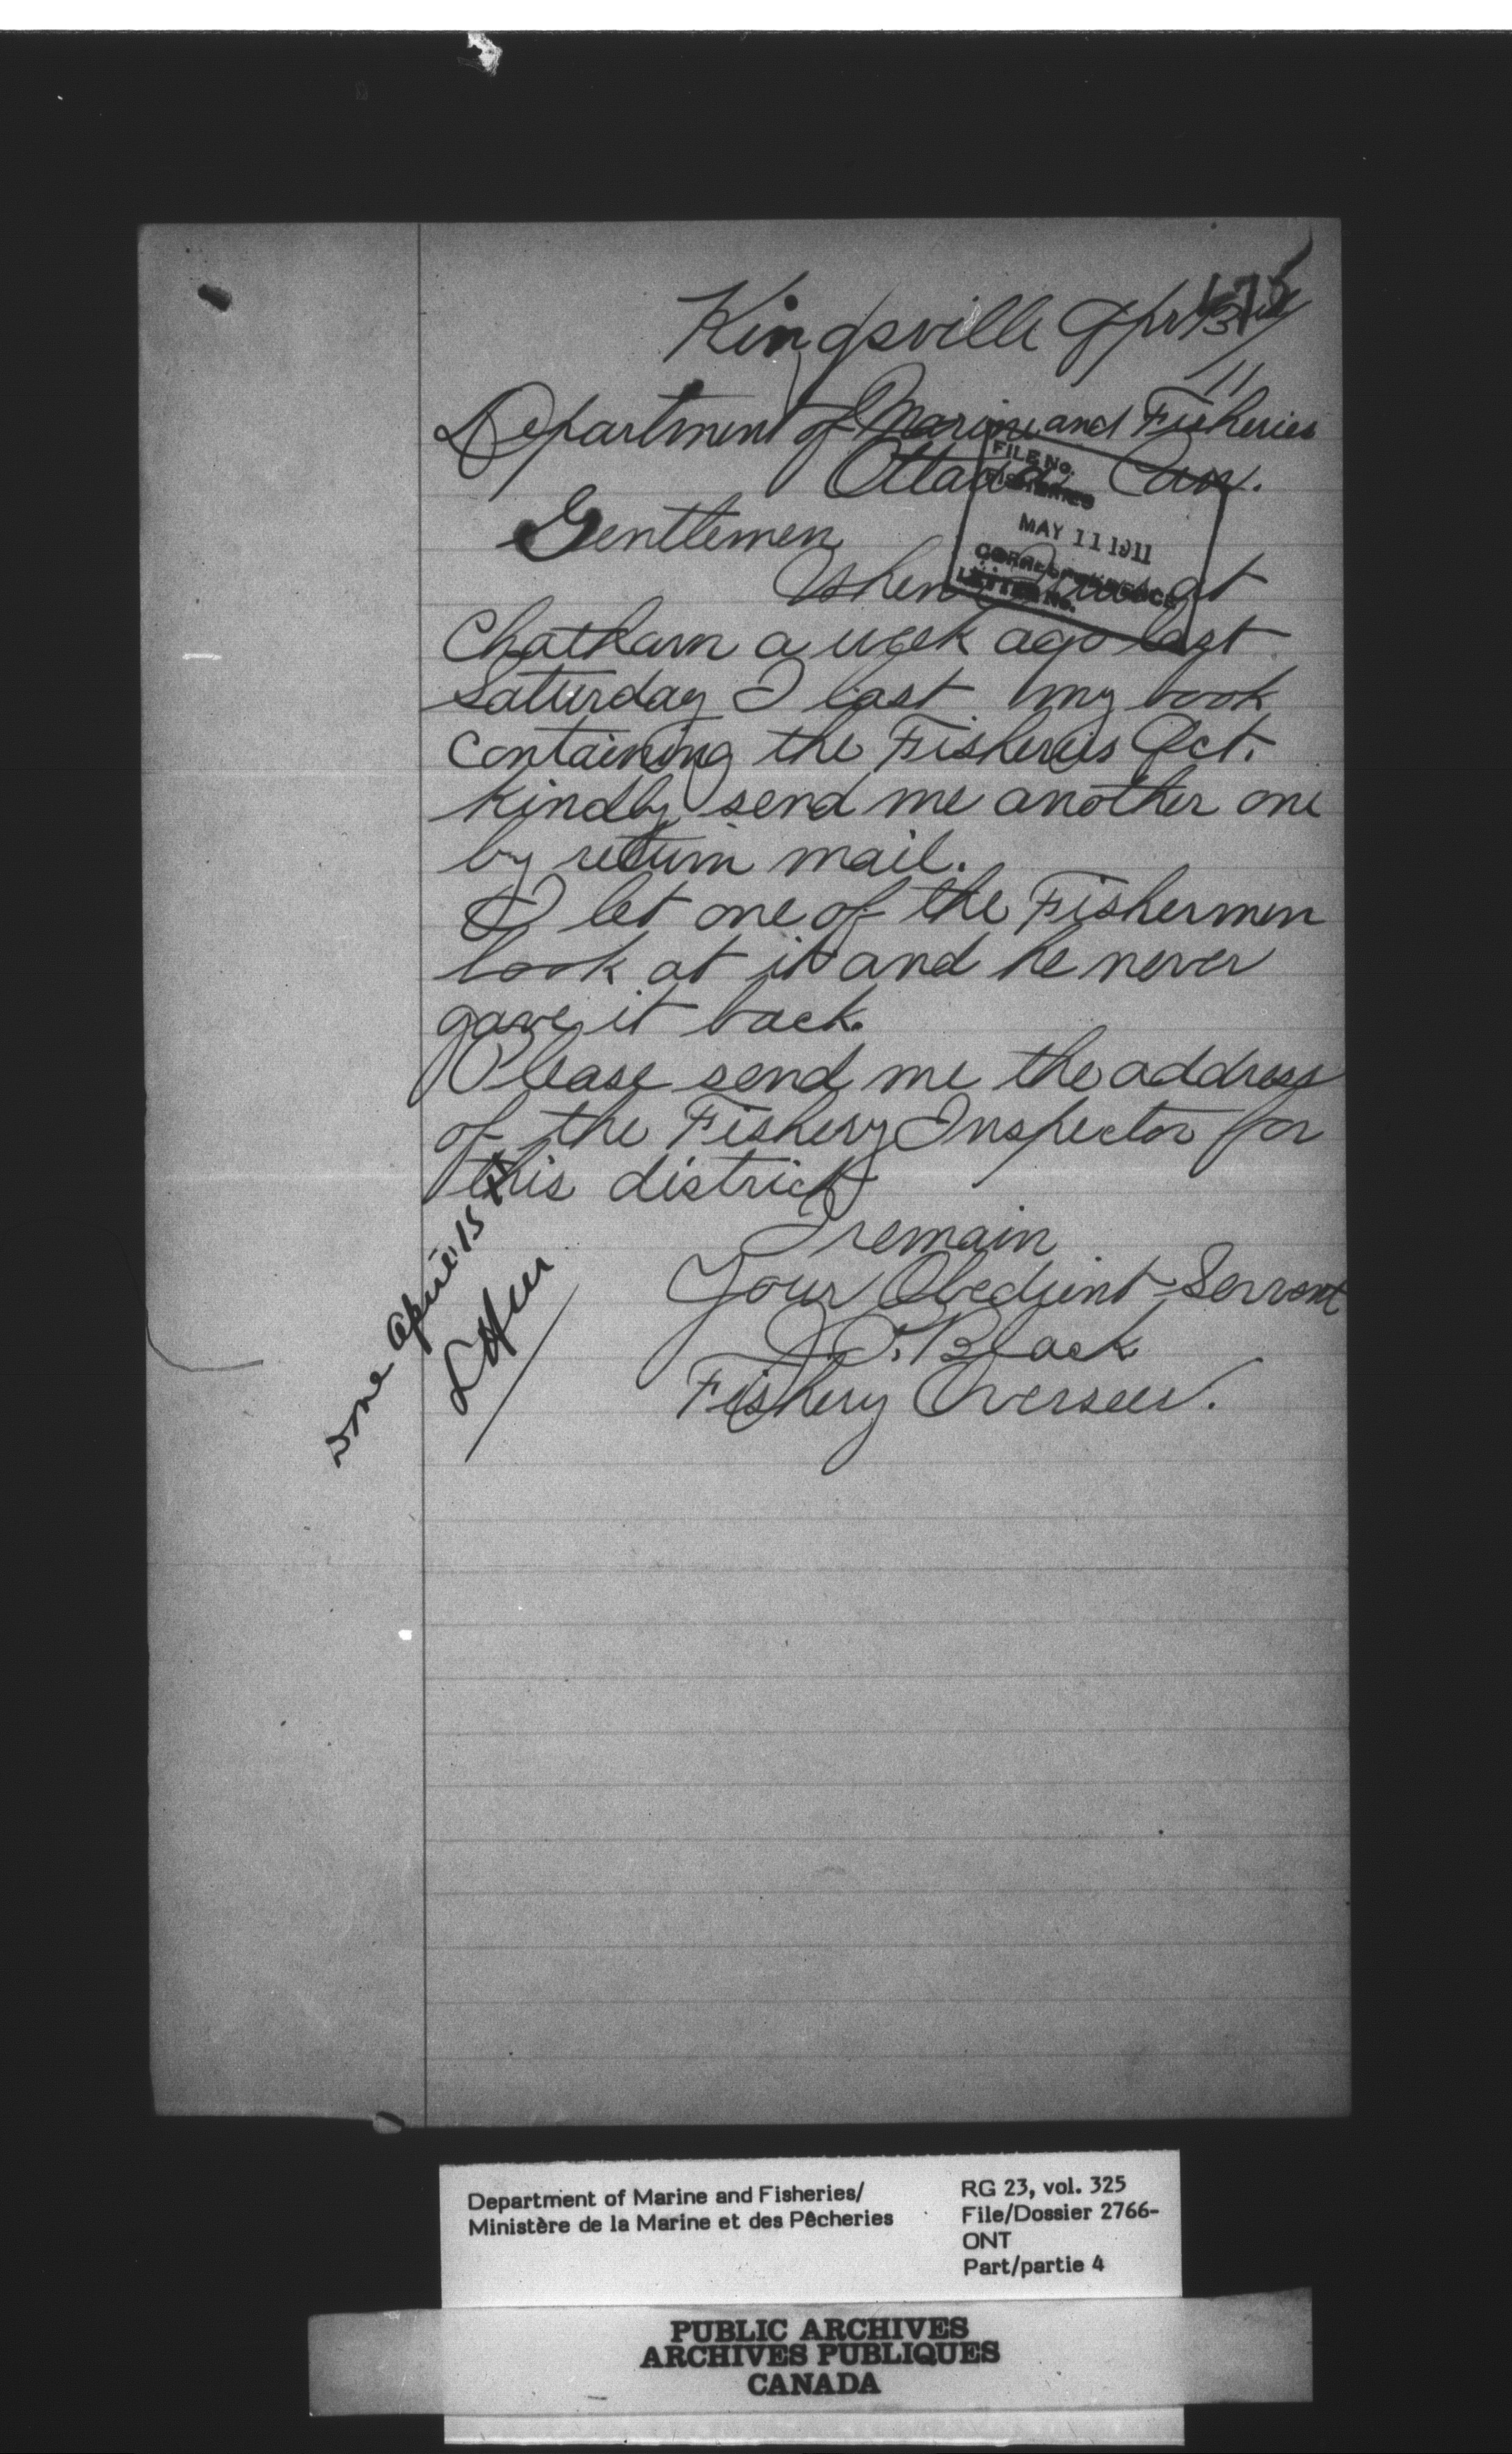 Kingsville Apr 13th
/11
Department of Marine and Fisheries
Ottawa Can.
FILE No.
FISHERIES
MAY 11 1911
CORRESPONDENCE
LETTER No.
Gentlemen
When I was at
Chatham a week ago last
Saturday I lost my book
containing the Fisheries Act.
Kindly send me another one
by return mail.
I let one of the Fishermen
look at it and he never
gave it back.
Please send me the address
of the Fishery Inspector for
this district
I remain
Your Obedient Servant
Black
Fishery Overseer.
Done April 15
Department of Marine and Fisheries/
Ministère de la Marine et des Pêcheries
RG 23, vol. 325
File/Dossier 2766-
ONT
Part/partie 4
PUBLIC ARCHIVES
ARCHIVES PUBLIQUES
CANADA